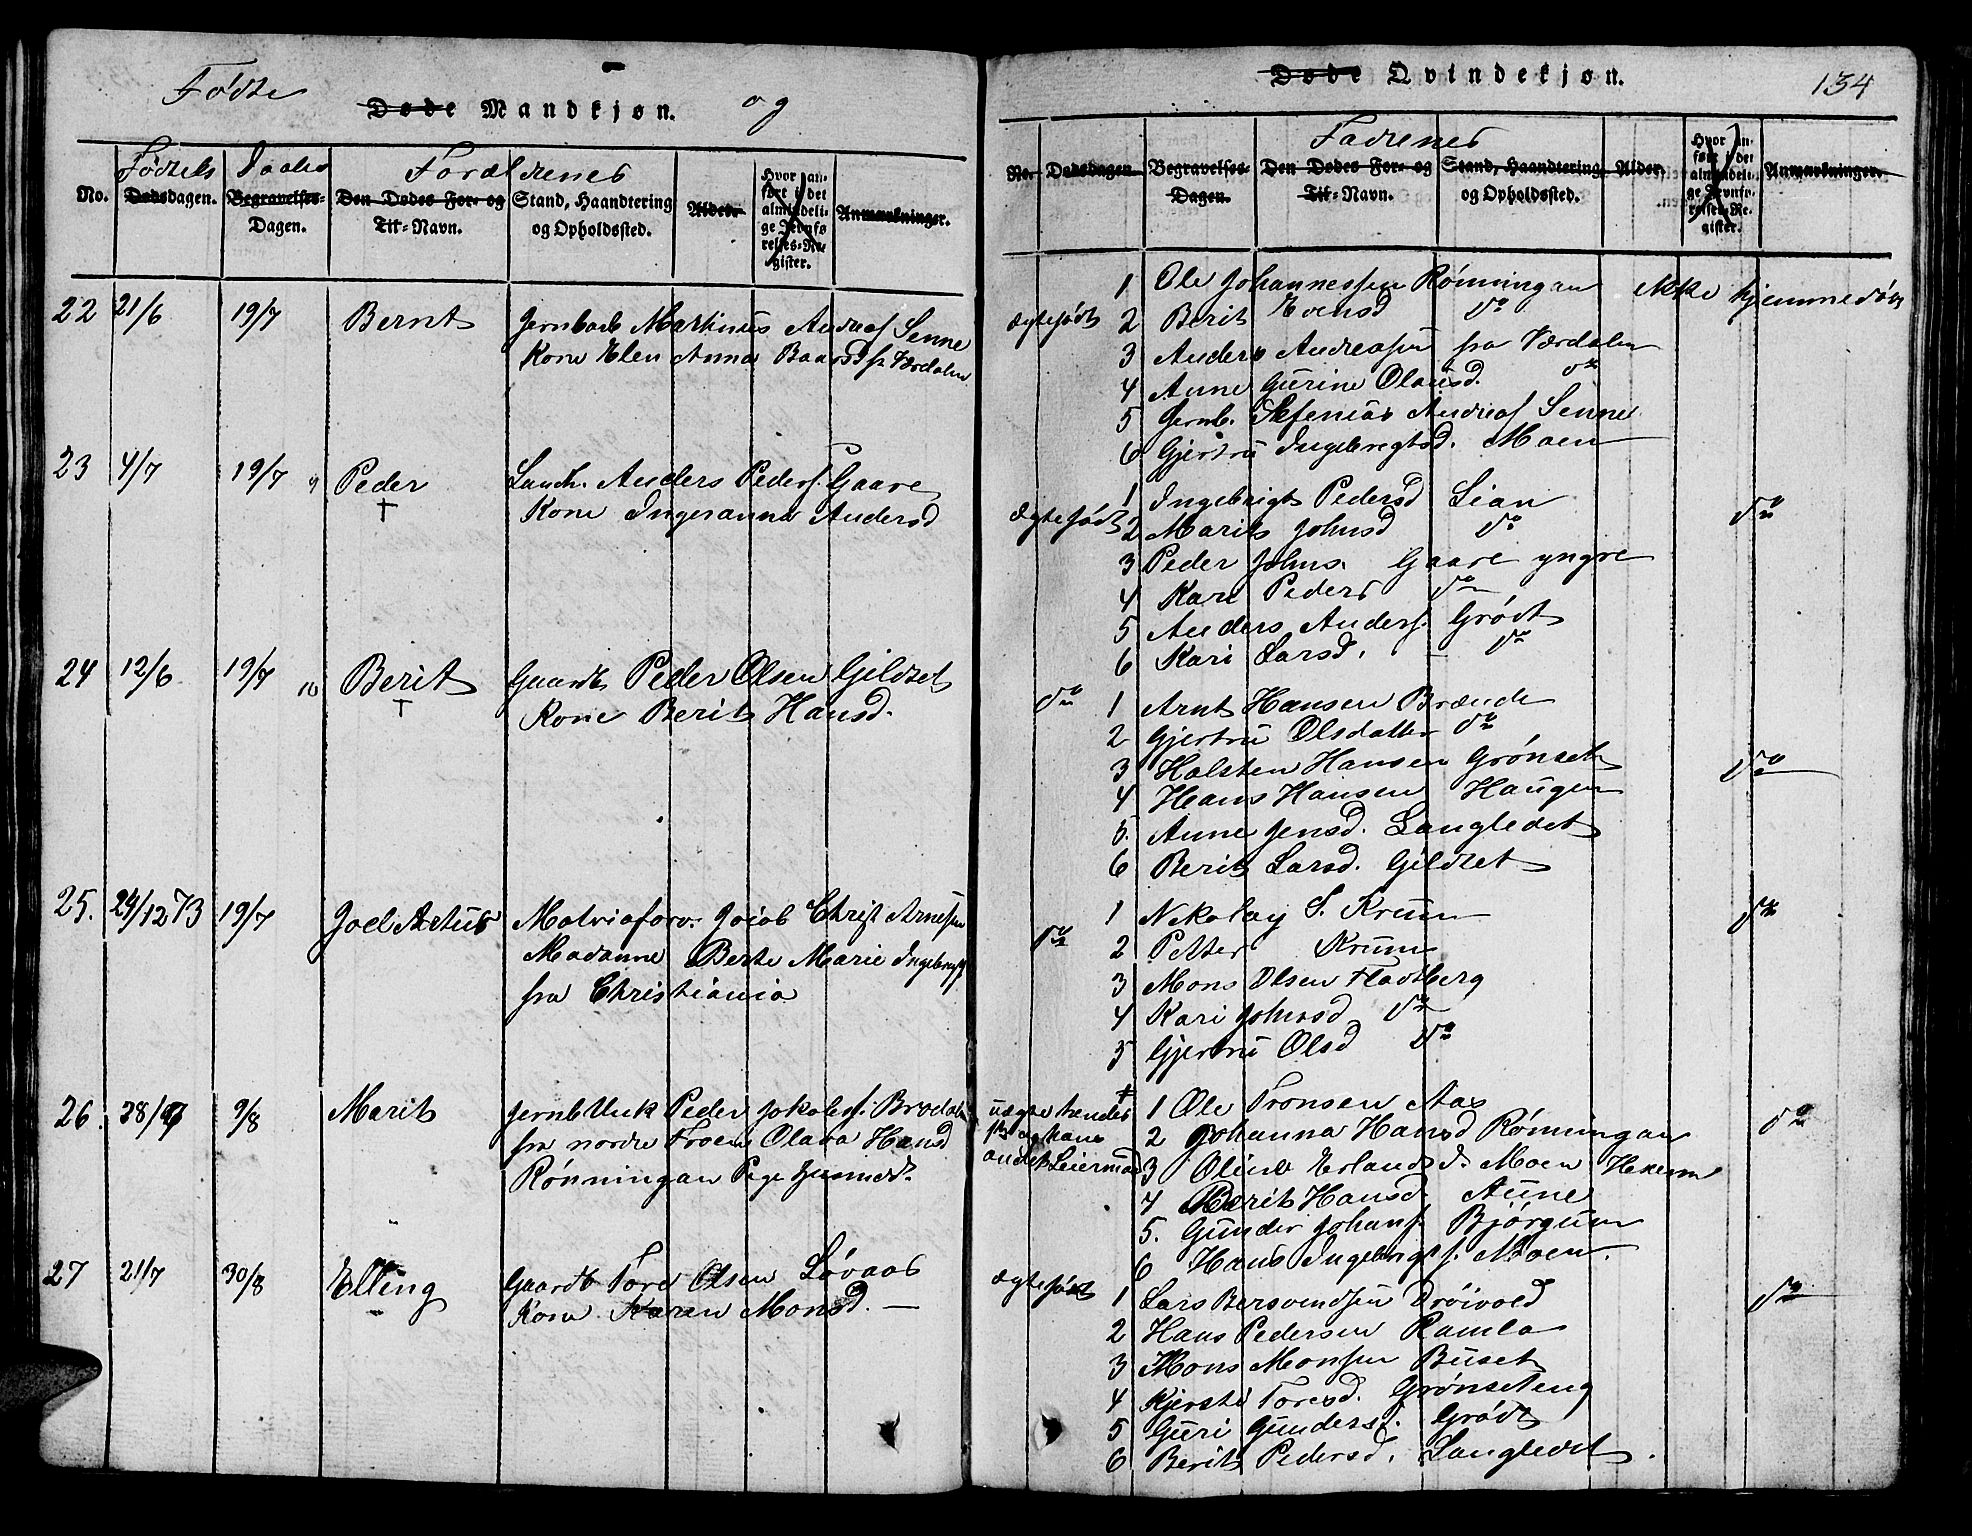 Fødte
Døde Mandkjøn. og
Fødsels Daabs Forældrenes
No. Dødsdagen. Begravelses-Dagen. Den Dødes For- og Til-Navn. Stand, Haandtering og Opholdssted. Alder. Hvor anført i det almindelige Jevnførelses-Register. Anmærkninger.
22 21/6 19/7 Bernt Jernbarb Martinus Andreas. Senne
Kone Elen Anna Baardsd fr Værdalen
23 4/7 19/7 9 Peder Landh. Anders Peders. Gaare
† Kone Ingeranna Andersd
24 12/6 19/7 10 Berit Gaardb Peder Olsen Gildset
† Kone Berit Hansd.
25. 24/12 73 19/7 Joel Artus Christ Arnessen
Madamme Berte Marie
fra Christiania
26. 28/ 9/8 Marit Peder
fra nordre Olava Hansd
Rønningan Pige
27 21/7 30/8 Elling Gaardb Tore Olsen Løvaas
Kone Karen Monsd. —
Døde Qvindekjøn. 134
Fadrenes
No. Dødsdagen. Begravelses-Dagen. Den Dødes For- og Til-Navn. Stand, Haandtering og Opholdssted. Alder. Hvor anført i det almindelige Jevnførelses-Register. Anmærkninger.
1 Ole Johannessen Rønningan ikke hjemmedøbt
ægtefødt 2 Berit Evensd do
3 Anders Andreasen fra Værdalen
4 Anne Gurine Olausd. do
5 Jernb. Andreas. Senne
6 Gjertru Ingebregtsd. Moen
1 Ingebrigt Pedersd Lian do
Ægtefødt 2 Marit Johnsd do
3 Peder Johns. Gaare yngre
4 Kari Peders do
5 Anders Anders. Grødt
6 Kari Larsd. — do
do 1 Arnt Hansen Brænde
2 Gjertru Olsdatter do
3 Halsten Hansen Grønset do
4 Hans Hansen Haugen
5. Anne Jensd. Langledet
6 Berit Larsd. Gildset
1 Nekolay S. Krum do
do 2 Petter Krum
3 Mons Olsen Flatberg
4 Kari Johnsd do
5 Gjertru Olsd do
†
uægte hendes 1 Ole Tronsen Aas do
2 Johanna Hansd Rønningan
andet Leiermaal 3 Oline Erlandsd. Moen
4 Berit Hansd. Aune
5. Gunder Johans. Bjørgum
6 Hans Ingebrigts. Moen.
ægtefødt 1 Lars Bersvendsen Drøivold do
2 Hans Pedersen Ramlo
3 Mons Monsen Buset
4 Kjersti Toresd. Grønseteng
5 Guri Gunders. Grødt
6 Berit Pedersd. Langledet.